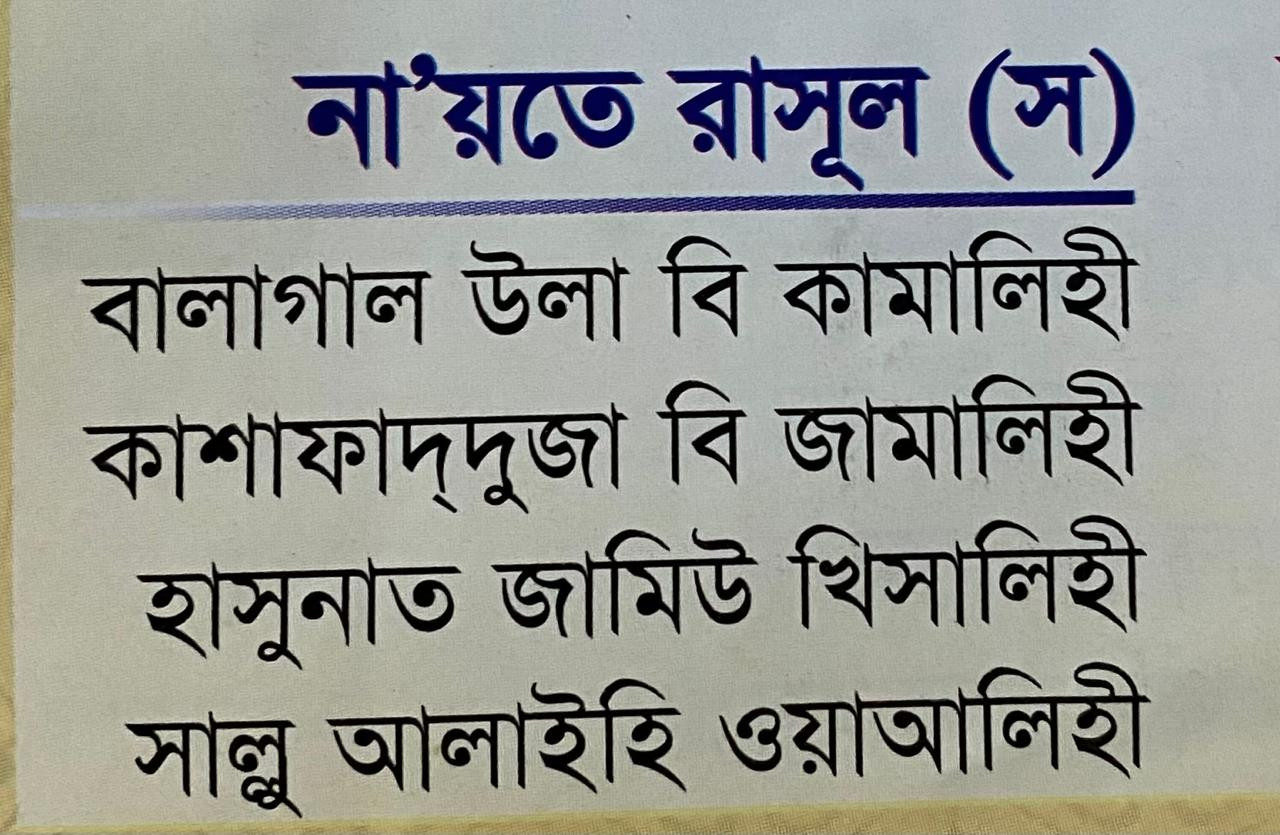 না’য়তে রাসূল (স)
বালাগাল উলা বি কামালিহী
কাশাফাদ্‌দুজা বি জামালিহী
হাসুনাত জামিউ খিসালিহী
সাল্লু আলাইহি ওয়াআলিহী